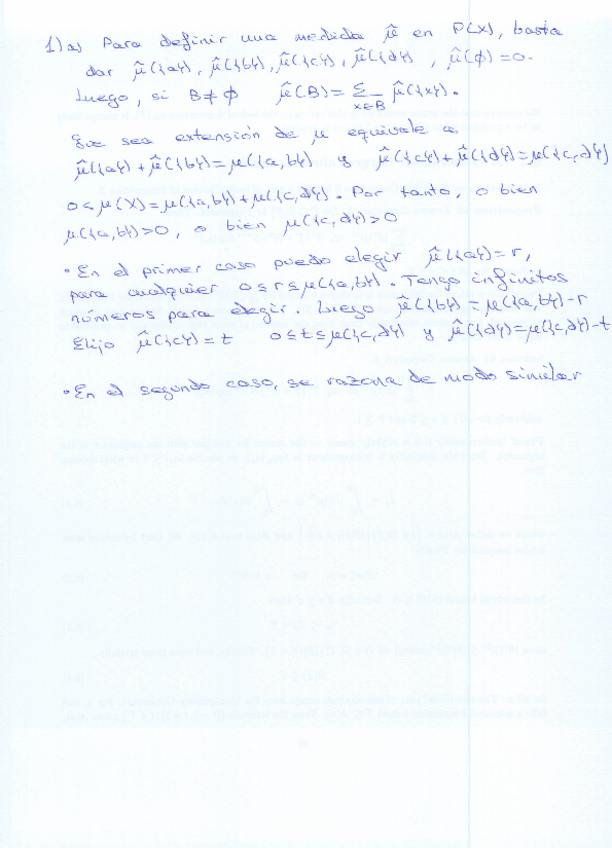 1) a) Para definir una medida μ̂ en P(X), basta
dar μ̂({a}), μ̂({b}), μ̂({c}), μ̂({d}), μ̂(∅)=0.
Luego, si B≠∅ μ̂(B)= Σ_{x∈B} μ̂({x}).
Que sea extensión de μ equivale a
μ̂({a})+μ̂({b})=μ({a,b}) y μ̂({c})+μ̂({d})=μ({c,d})
0<μ(X)=μ({a,b})+μ({c,d}). Por tanto, o bien
μ({a,b})>0, o bien μ({c,d})>0
• En el primer caso puedo elegir μ̂({a})=r,
para cualquier 0≤r≤μ({a,b}). Tengo infinitos
números para elegir. Luego μ̂({b})=μ({a,b})-r
Elijo μ̂({c})=t 0≤t≤μ({c,d}) y μ̂({d})=μ({c,d})-t
• En el segundo caso, se razona de modo similar